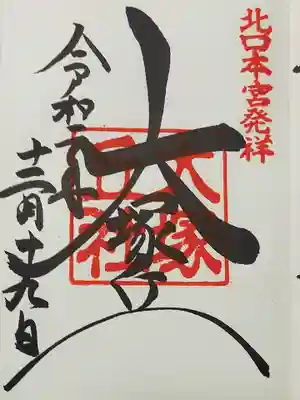 北口本宮発祥
大塚丘
大塚
丘社
令和二年
十二月十九日